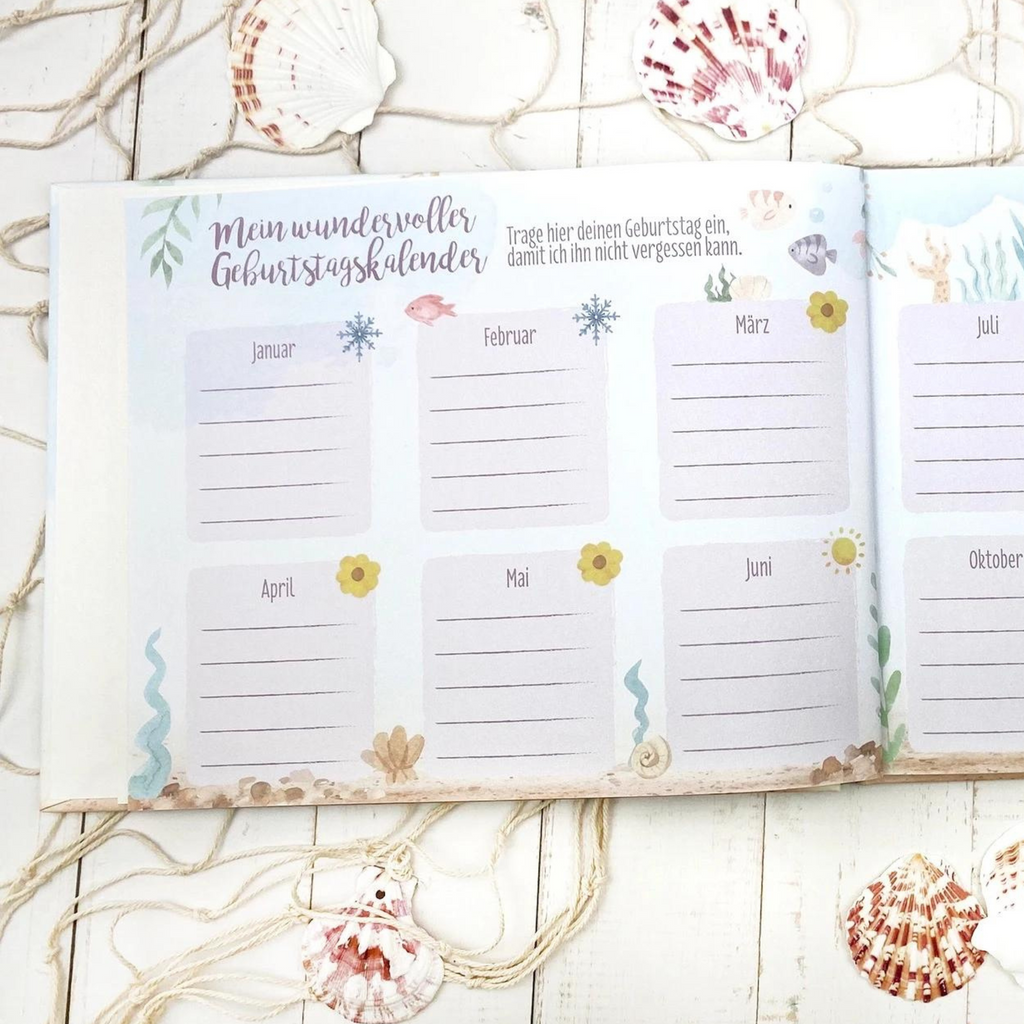 Mein wundervoller
Geburtstagskalender
Trage hier deinen Geburtstag ein,
damit ich ihn nicht vergessen kann.
Januar
Februar
März
Juli
April
Mai
Juni
Oktober